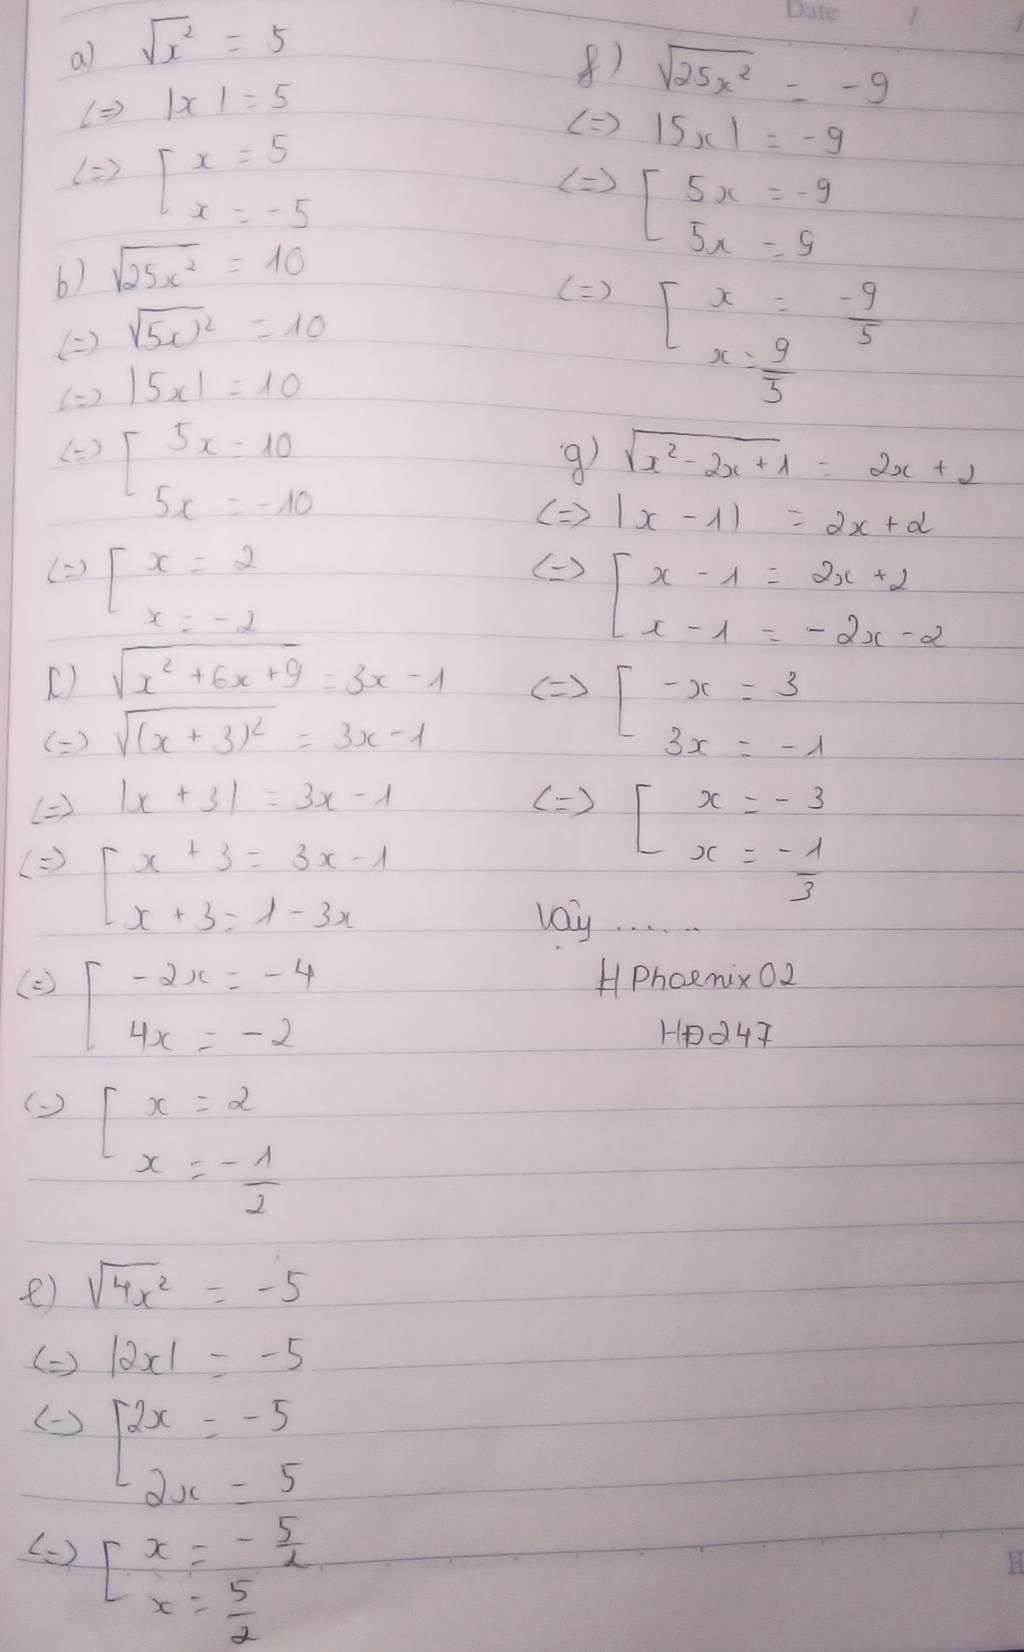 Date / /
a) √x² = 5
<=> |x| = 5
<=> [ x = 5
x = -5
b) √25x² = 10
<=> √(5x)² = 10
<=> |5x| = 10
<=> [ 5x = 10
5x = -10
<=> [ x = 2
x = -2
c) √x² + 6x + 9 = 3x - 1
<=> √(x + 3)² = 3x - 1
<=> |x + 3| = 3x - 1
<=> [ x + 3 = 3x - 1
x + 3 = 1 - 3x
<=> [ -2x = -4
4x = -2
<=> [ x = 2
x = -1/2
e) √4x² = -5
<=> |2x| = -5
<=> [ 2x = -5
2x = 5
<=> [ x = -5/2
x = 5/2
f) √25x² = -9
<=> |5x| = -9
<=> [ 5x = -9
5x = 9
<=> [ x = -9/5
x = 9/5
g) √x² - 2x + 1 = 2x + 2
<=> |x - 1| = 2x + 2
<=> [ x - 1 = 2x + 2
x - 1 = -2x - 2
<=> [ -x = 3
3x = -1
<=> [ x = -3
x = -1/3
Vậy ......
# Phoenix02
HĐ247
H